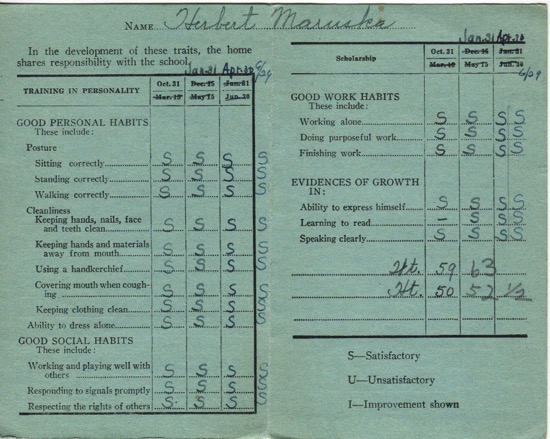 NAME Herbert Maruska
In the development of these traits, the home
shares responsibility with the school.
Jan. 31 Apr. 6/29
TRAINING IN PERSONALITY Oct. 31 Dec. 15 Jan. 31
Mar. 15 May 15 Jun. 30
GOOD PERSONAL HABITS
These include:
Posture
Sitting correctly S S S S
Standing correctly S S S S
Walking correctly S S S S
Cleanliness
Keeping hands, nails, face
and teeth clean S S S S
Keeping hands and materials
away from mouth S S S S
Using a handkerchief S S S S
Covering mouth when cough-
ing S S S S
Keeping clothing clean S S S S
Ability to dress alone S S S S
GOOD SOCIAL HABITS
These include:
Working and playing well with
others S S S S
Responding to signals promptly S S S S
Respecting the rights of others S S S S
Jan. 31 Apr.
Scholarship Oct. 31 Dec. 15 Jan. 31
Mar. 15 May 15 Jun. 30
6/29
GOOD WORK HABITS
These include:
Working alone S S S S
Doing purposeful work S S S S
Finishing work S S S S
EVIDENCES OF GROWTH
IN:
Ability to express himself S S S S
Learning to read – S S S
Speaking clearly S S S S
Wt. 59 63
Ht. 50 52 1/2
S—Satisfactory
U—Unsatisfactory
I—Improvement shown